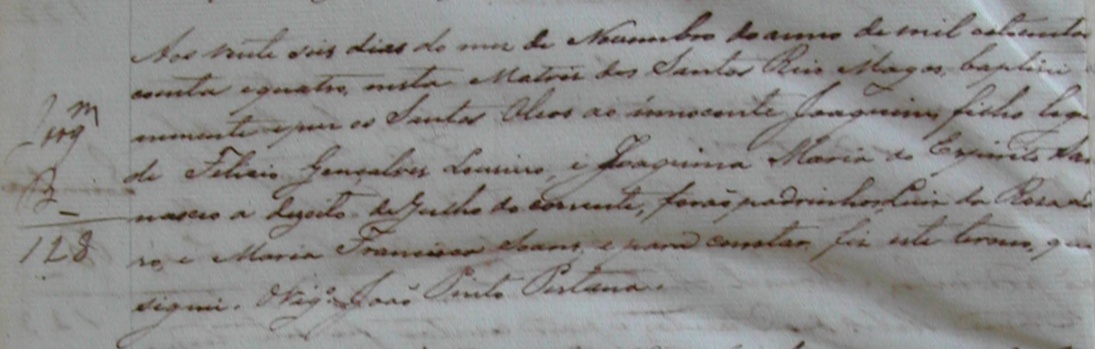 Aos vinte seis dias do mez de Novembro do anno de mil oitocentos
coenta e quatro, nesta Matriz dos Santos Reis Magos, baptizei
mnemente e puz os Santos Oleos ao innocente Joaquim, filho leg
de Felicio Gonçalves Loureiro, e Joaquina Maria do Espirito San
nasceo a dezoito de Julho do corrente, forão padrinhos Luis da Rosa
ro, e Maria Francisca e para constar, fiz este termo, que
signei. O Vigº João Pinto Pestana.
B
128